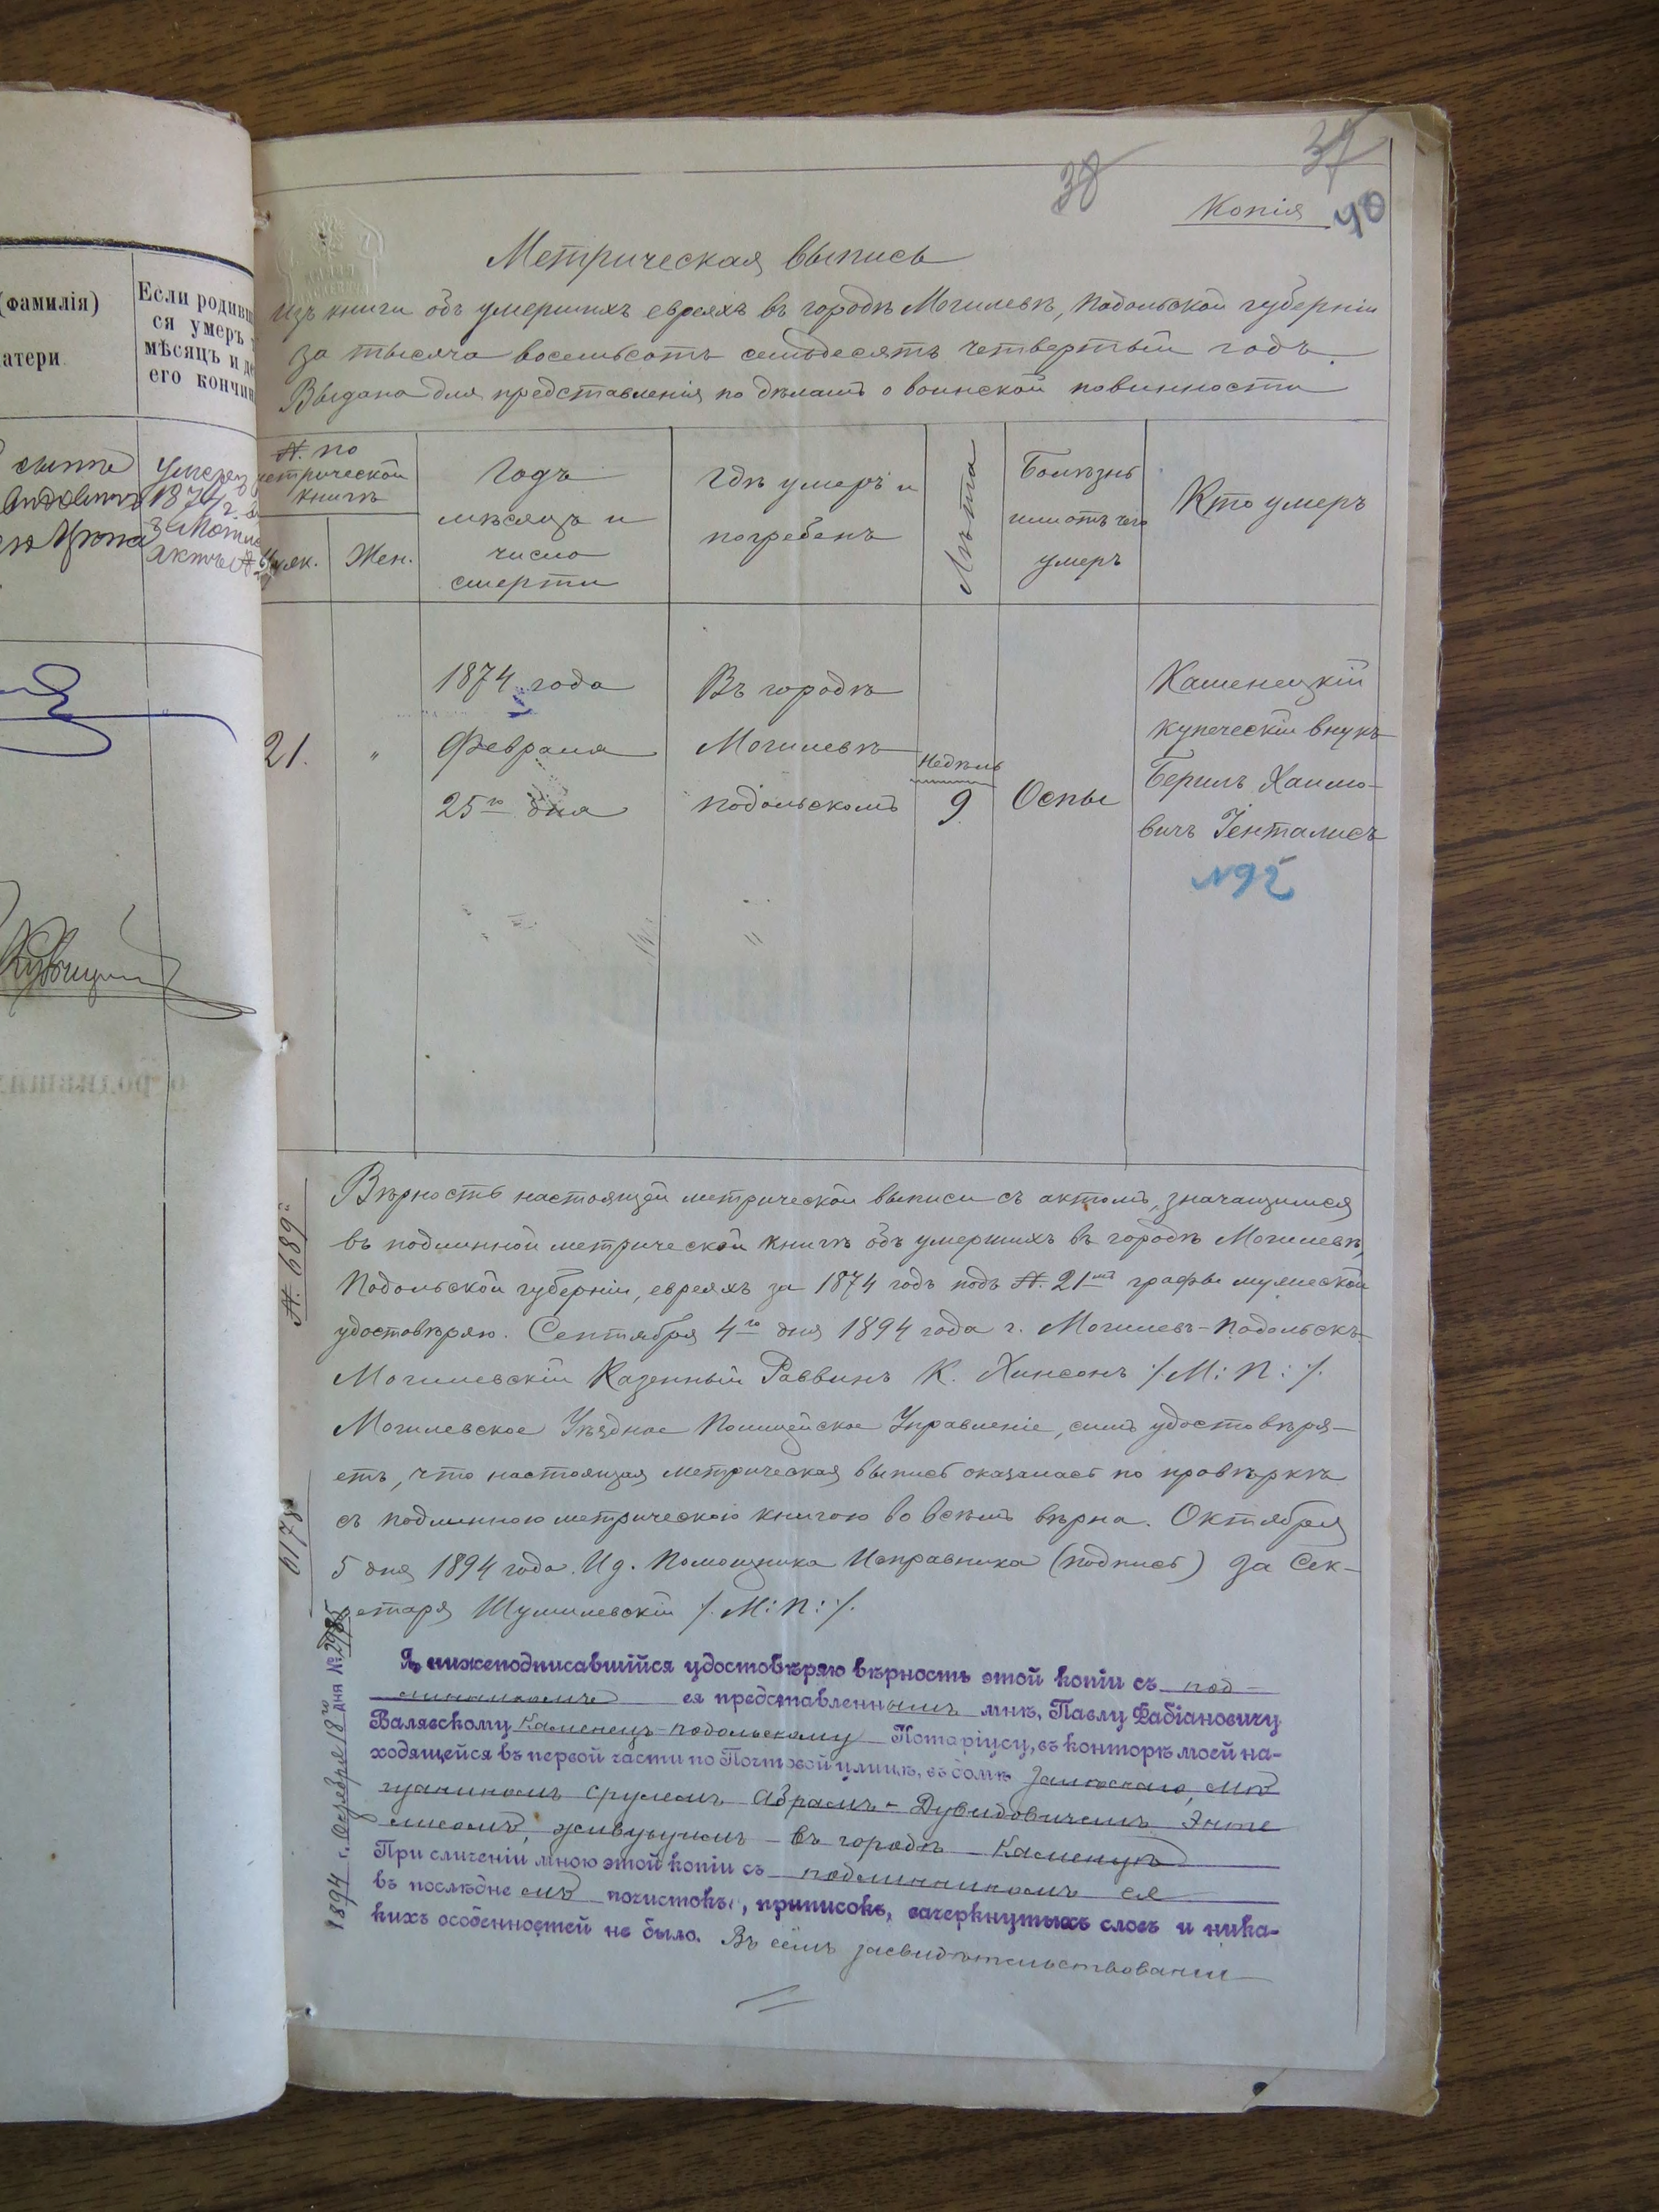 (фамилія)
атери.
Если родивш
ся умеръ
мѣсяцъ и де
его кончин
Умеръ
1874 г.
38
37
Копія
40
Метрическая выпись
изъ книги объ умершихъ евреяхъ въ городѣ Могилевѣ, Подольской губерніи
за тысяча восемьсотъ семьдесятъ четвертый годъ.
Выдана для представленія по дѣламъ о воинской повинности
№ по
метрической
книгѣ
Муж.
Жен.
Годъ
мѣсяцъ и
число
смерти
Гдѣ умеръ и
погребенъ
Лѣта
Болѣзнь
или отъ чего
умеръ
Кто умеръ
21.
"
1874 года
Февраля
25го дня
Въ городѣ
Могилевѣ
Подольскомъ
Недѣль
9
Оспы
Каменецкій
купеческій внукъ
Берилъ Хаимо-
вичъ Іенталисъ
№92
Вѣрность настоящей метрической выписи съ актомъ, значащимся
въ подлинной метрической книгѣ объ умершихъ въ городѣ Могилевѣ,
Подольской губерніи, евреяхъ за 1874 годъ подъ № 21мъ графы мужеской
удостовѣряю. Сентября 4го дня 1894 года г. Могилевъ-Подольскъ.
Могилевскій Казенный Раввинъ К. Хинсонъ /. М: П: /.
Могилевское Уѣздное Полицейское Управленіе, симъ удостовѣря-
етъ, что настоящая метрическая выпись оказалась по провѣркѣ
съ подлинною метрическою книгою во всемъ вѣрна. Октября
5 дня 1894 года. И д. Помощника Исправника (подпись) За Сек-
ретаря Шумилевскій /. М: П: /.
№ 689
6178
1894 г. Октября 18го дня №2985
Я, нижеподписавшійся удостовѣряю вѣрность этой копіи съ под-
линникомъ ея представленнымъ мнѣ, Павлу Фабіановичу
Валявскому Каменецъ-Подольскому Нотаріусу, въ конторѣ моей на-
ходящейся въ первой части по Почтовой улицѣ, въ домѣ Залѣскаго, мѣ
щаниномъ Срулемъ Абрамъ-Дувидовичемъ Энте
лисомъ, живущимъ въ городѣ Каменцѣ
При сличеніи мною этой копіи съ подлинникомъ ея
въ послѣднемъ почистокъ, приписокъ, зачеркнутыхъ словъ и ника-
кихъ особенностей не было. Въ семъ засвидѣтельствованіи